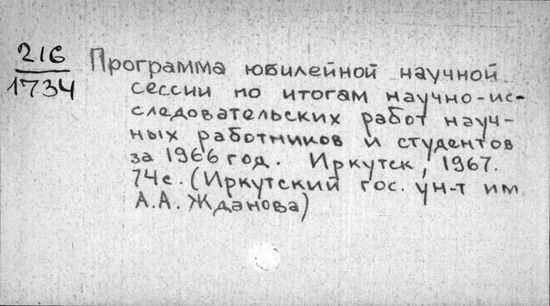 216
1734
Программа юбилейной научной
сессии по итогам научно-ис-
следовательских работ науч-
ных работников и студентов
за 1966 год. Иркутск, 1967.
74с. (Иркутский гос. ун-т им.
А.А. Жданова)